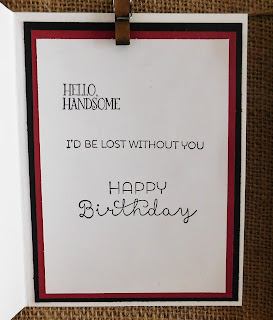 HELLO,
HANDSOME.
I'D BE LOST WITHOUT YOU
HAPPY
Birthday